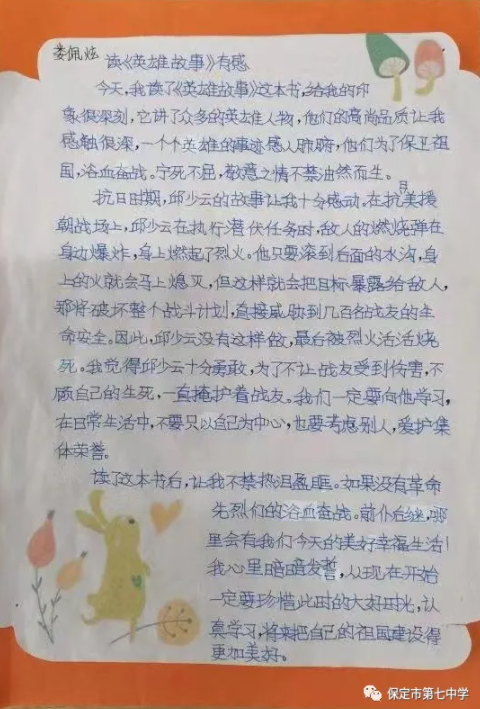 娄佩炫
读《英雄故事》有感
今天,我读了《英雄故事》这本书,给我的印
象很深刻,它讲了众多的英雄人物,他们的高尚品质让我
感触很深,一个个英雄的事迹感人肺腑,他们为了保卫祖
国,浴血奋战。宁死不屈,敬意之情不禁油然而生。
抗日时期,邱少云的故事让我十分感动。在抗美援
朝战场上,邱少云在执行潜伏任务时,敌人的燃烧弹在
身边爆炸,身上燃起了烈火。他只要滚到后面的水沟,身
上的火就会马上熄灭,但这样就会把目标暴露给敌人,
那将破坏整个战斗计划,直接威胁到几百名战友的生
命安全。因此,邱少云没有这样做,最后被烈火活活烧
死。我觉得邱少云十分勇敢,为了不让战友受到伤害,不
顾自己的生死,一直掩护着战友。我们一定要向他学习,
在日常生活中,不要只以自己为中心,也要考虑别人,爱护集
体荣誉。
读了这本书后,让我不禁热泪盈眶。如果没有革命
先烈们的浴血奋战。前仆后继,哪
里会有我们今天的美好幸福生活!
我心里暗暗发誓,从现在开始
一定要珍惜此时的大好时光,认
真学习,将来把自己的祖国建设得
更加美好。
保定市第七中学